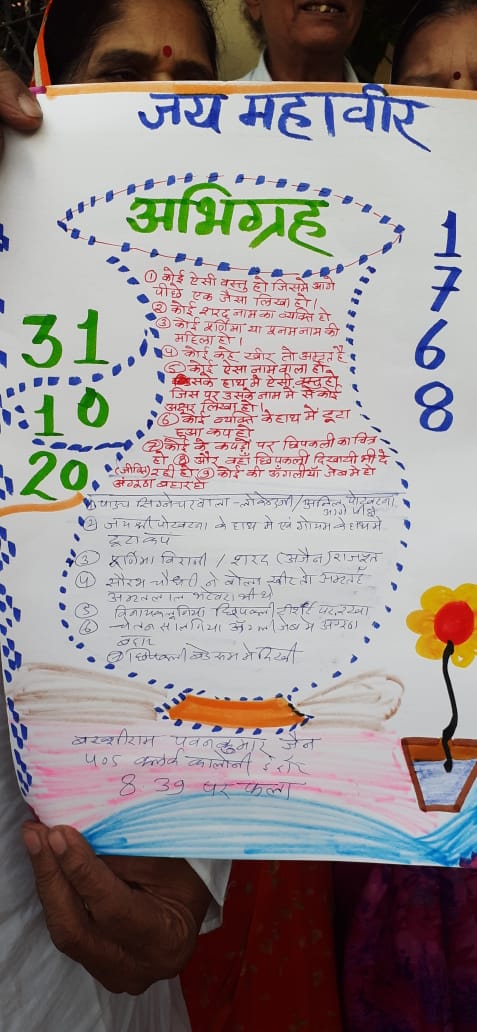 जय महावीर
अभिग्रह
① कोई ऐसी वस्तु हो जिसमे आगे
पीछे एक जैसा लिखा हो।
② कोई शरद नाम का व्यक्ति हो
③ कोई पूर्णिमा या पूनम नाम की
महिला हो।
④ कोई कहे खीर तो अमृत है
⑤ कोई ऐसा नाम वाला हो
उसके हाथ मे ऐसी वस्तु हो
जिस पर उसके नाम मे से कोई
अक्षर लिखा हो।
⑥ कोई व्यक्ति के हाथ मे टूटा
हुआ कप हो
⑦ कोई के कपड़ो पर छिपकली का चित्र
हो ⑧ और वहाँ छिपकली दिखायी भी दे
(जीवित) रही हो ⑨ कोई की उँगलीयाँ जेब मे हो
अंगूठा बहार हो
31
10
20
1
7
6
8
② जयश्री पोखरना के हाथ मे एवं गौतम के हाथ मे
टूटा कप
③ पूर्णिमा बिरानी / शरद (अजैन) राजपूत
④ सौरभ चौधरी ने बोला खीर तो अमृत है
⑤ विनायक लूनिया छिपकली टीशर्ट पर रखा
⑥ चेतन सालगिया उंगली जेब मे अंगूठा
बहार
⑦ छिपकली बेडरूम मे दिखी
बख्शीराम पवनकुमार जैन
405 क्लर्क कालोनी इंदौर
8.39 पर फला